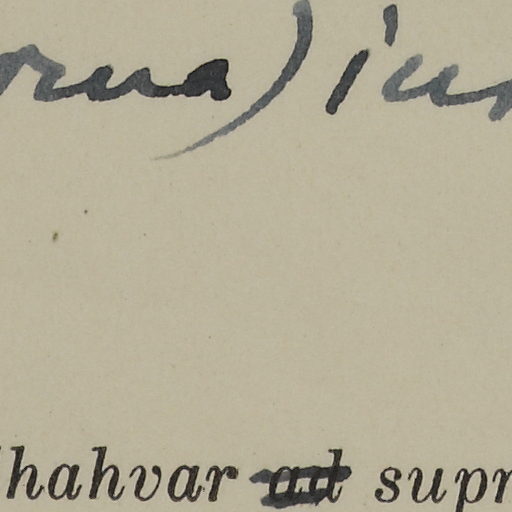 orua) iur
hahvar ad supr